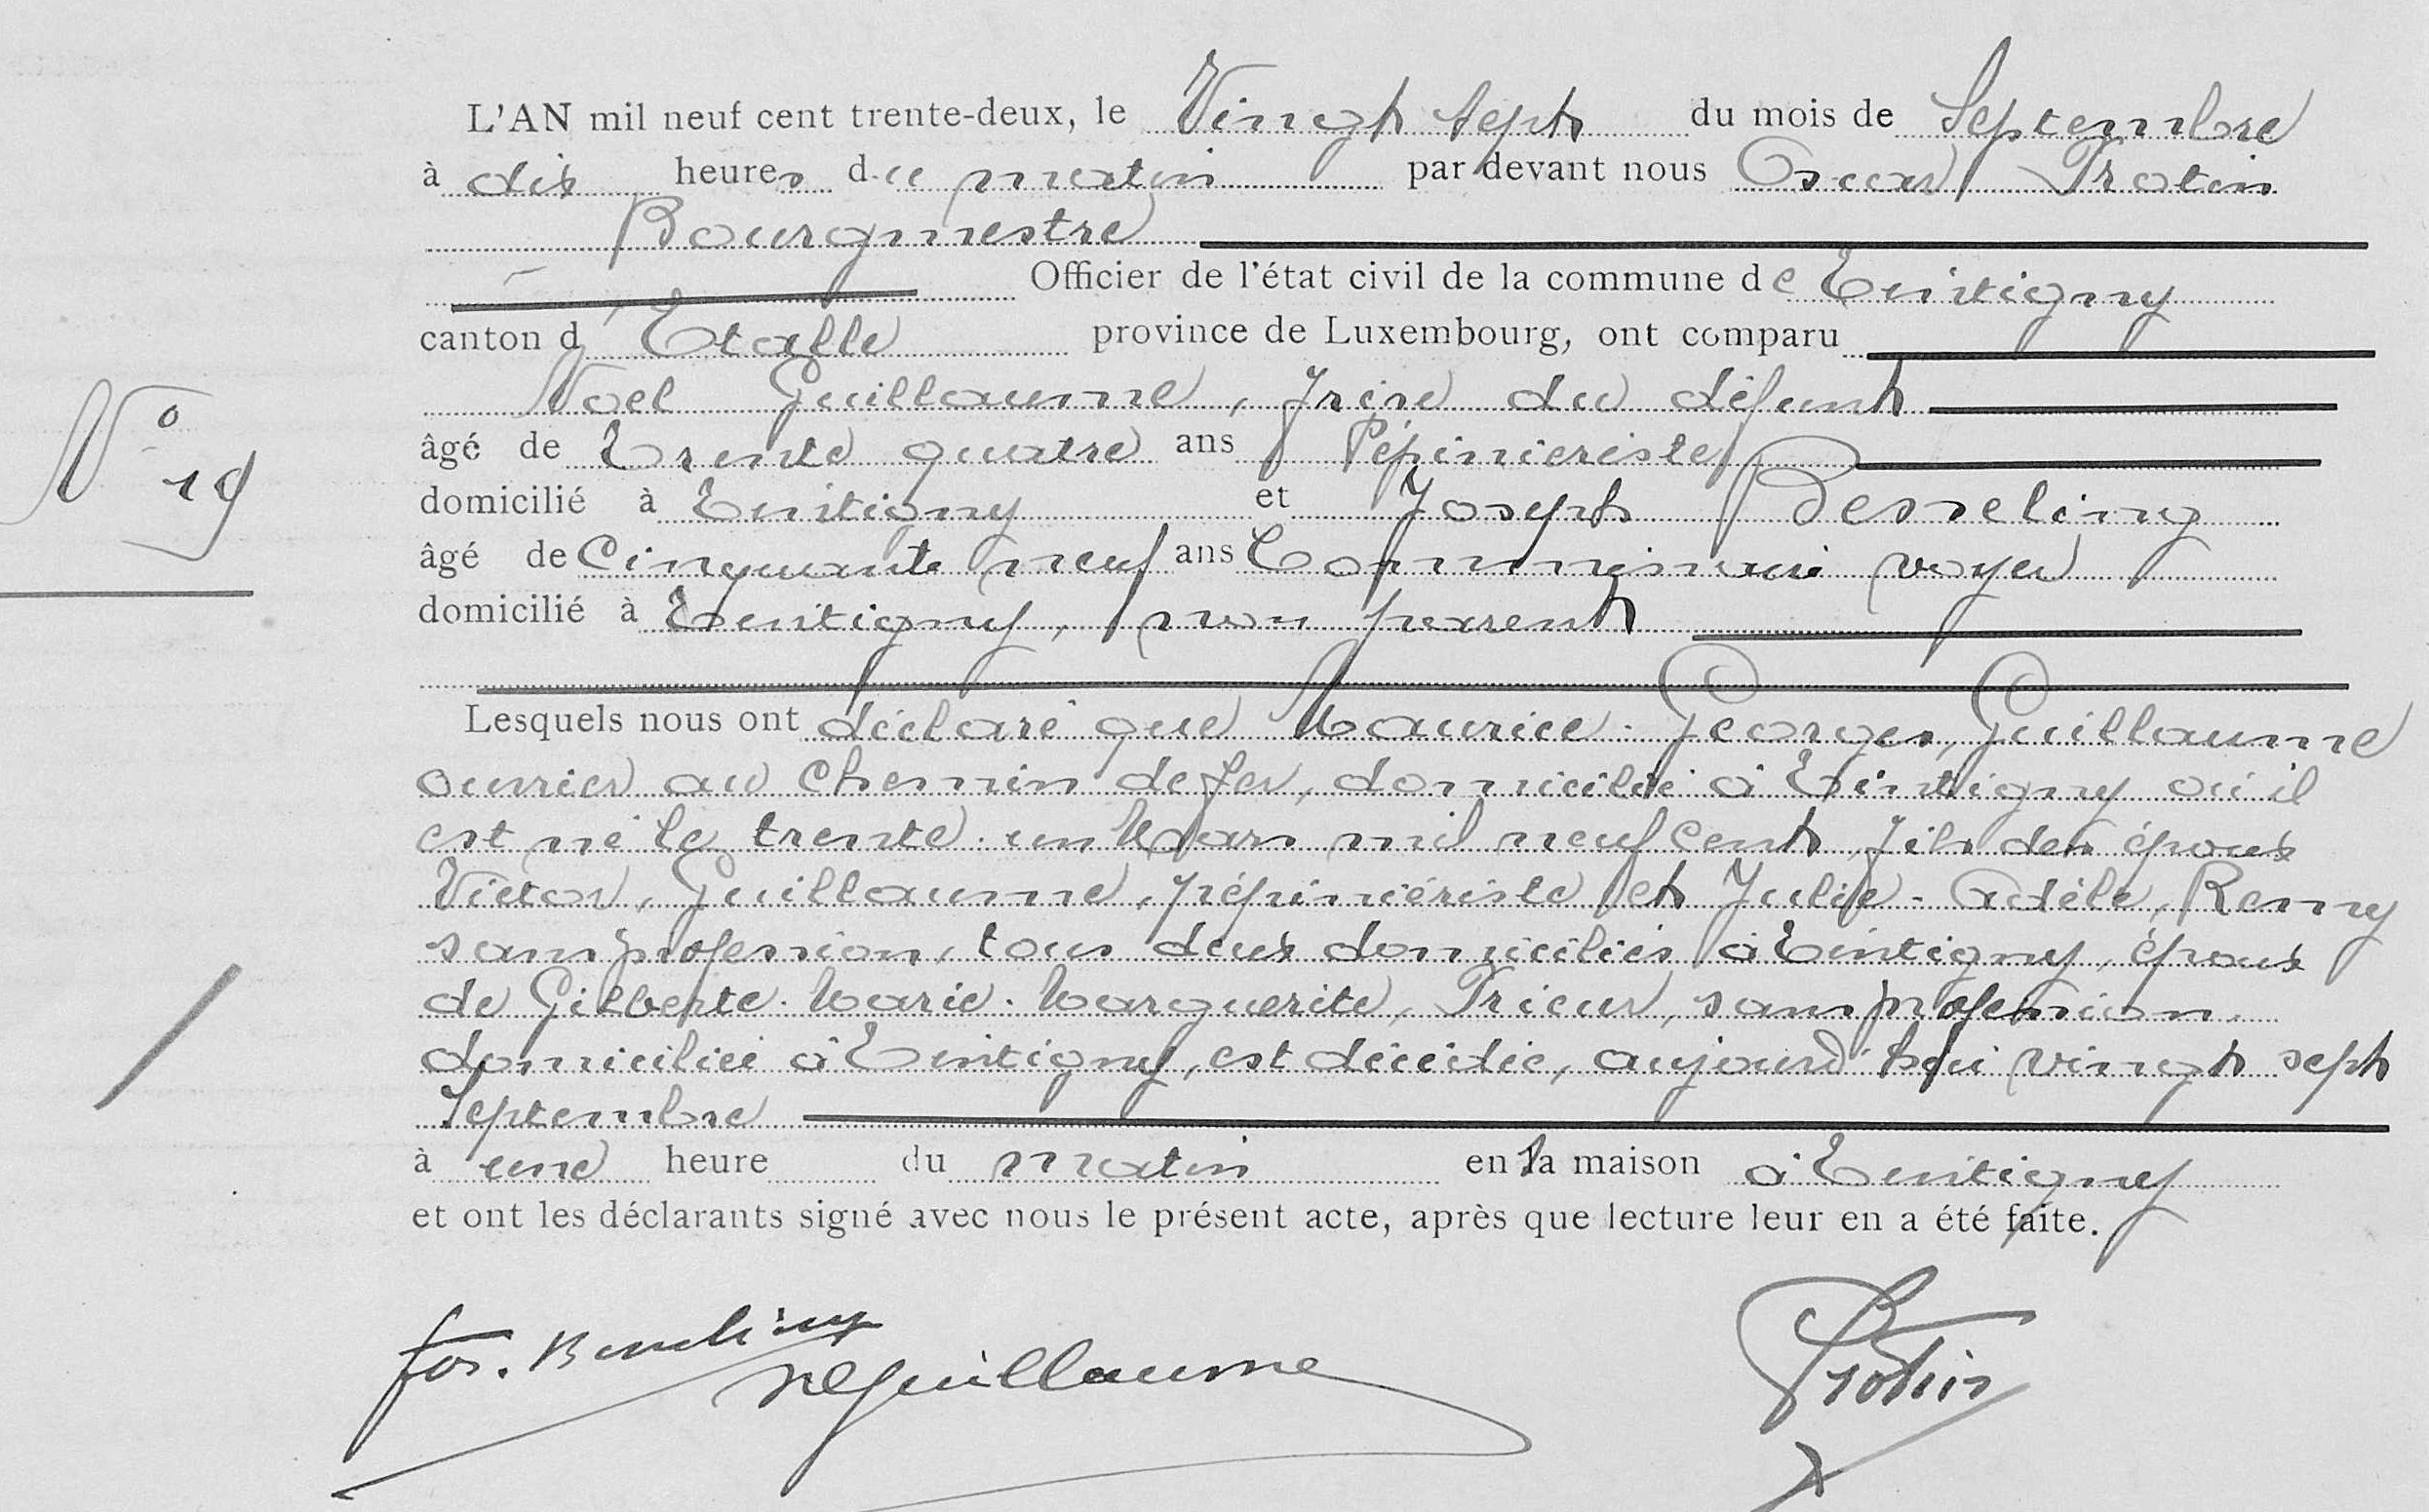 L'AN mil neuf cent trente-deux, le Vingt sept du mois de Septembre
à dix heures du matin par devant nous Oscar Protin
Bourgmestre
Officier de l'état civil de la commune de Tintigny
canton d'Etalle province de Luxembourg, ont comparu
Noël Guillaume, frère du défunt
âgé de Trente quatre ans Pépiniériste
domicilié à Tintigny et Joseph Besseling
âgé de Cinquante neuf ans Commissaire voyer
domicilié à Tintigny, non parent
N° 19
Lesquels nous ont déclaré que Maurice-Georges, Guillaume
ouvrier au chemin de fer, domicilié à Tintigny où il
est né le trente-un Mars mil neuf cent, fils des époux
Victor, Guillaume, pépiniériste et Julie-Adèle, Remy
sans profession, tous deux domiciliés à Tintigny, époux
de Gilberte-Marie-Marguerite, Prieur, sans profession
domiciliée à Tintigny, est décédé, aujourd'hui vingt sept
Septembre
à une heure du matin en la maison à Tintigny
et ont les déclarants signé avec nous le présent acte, après que lecture leur en a été faite.
Jos. Besseling
N Guillaume
Protin